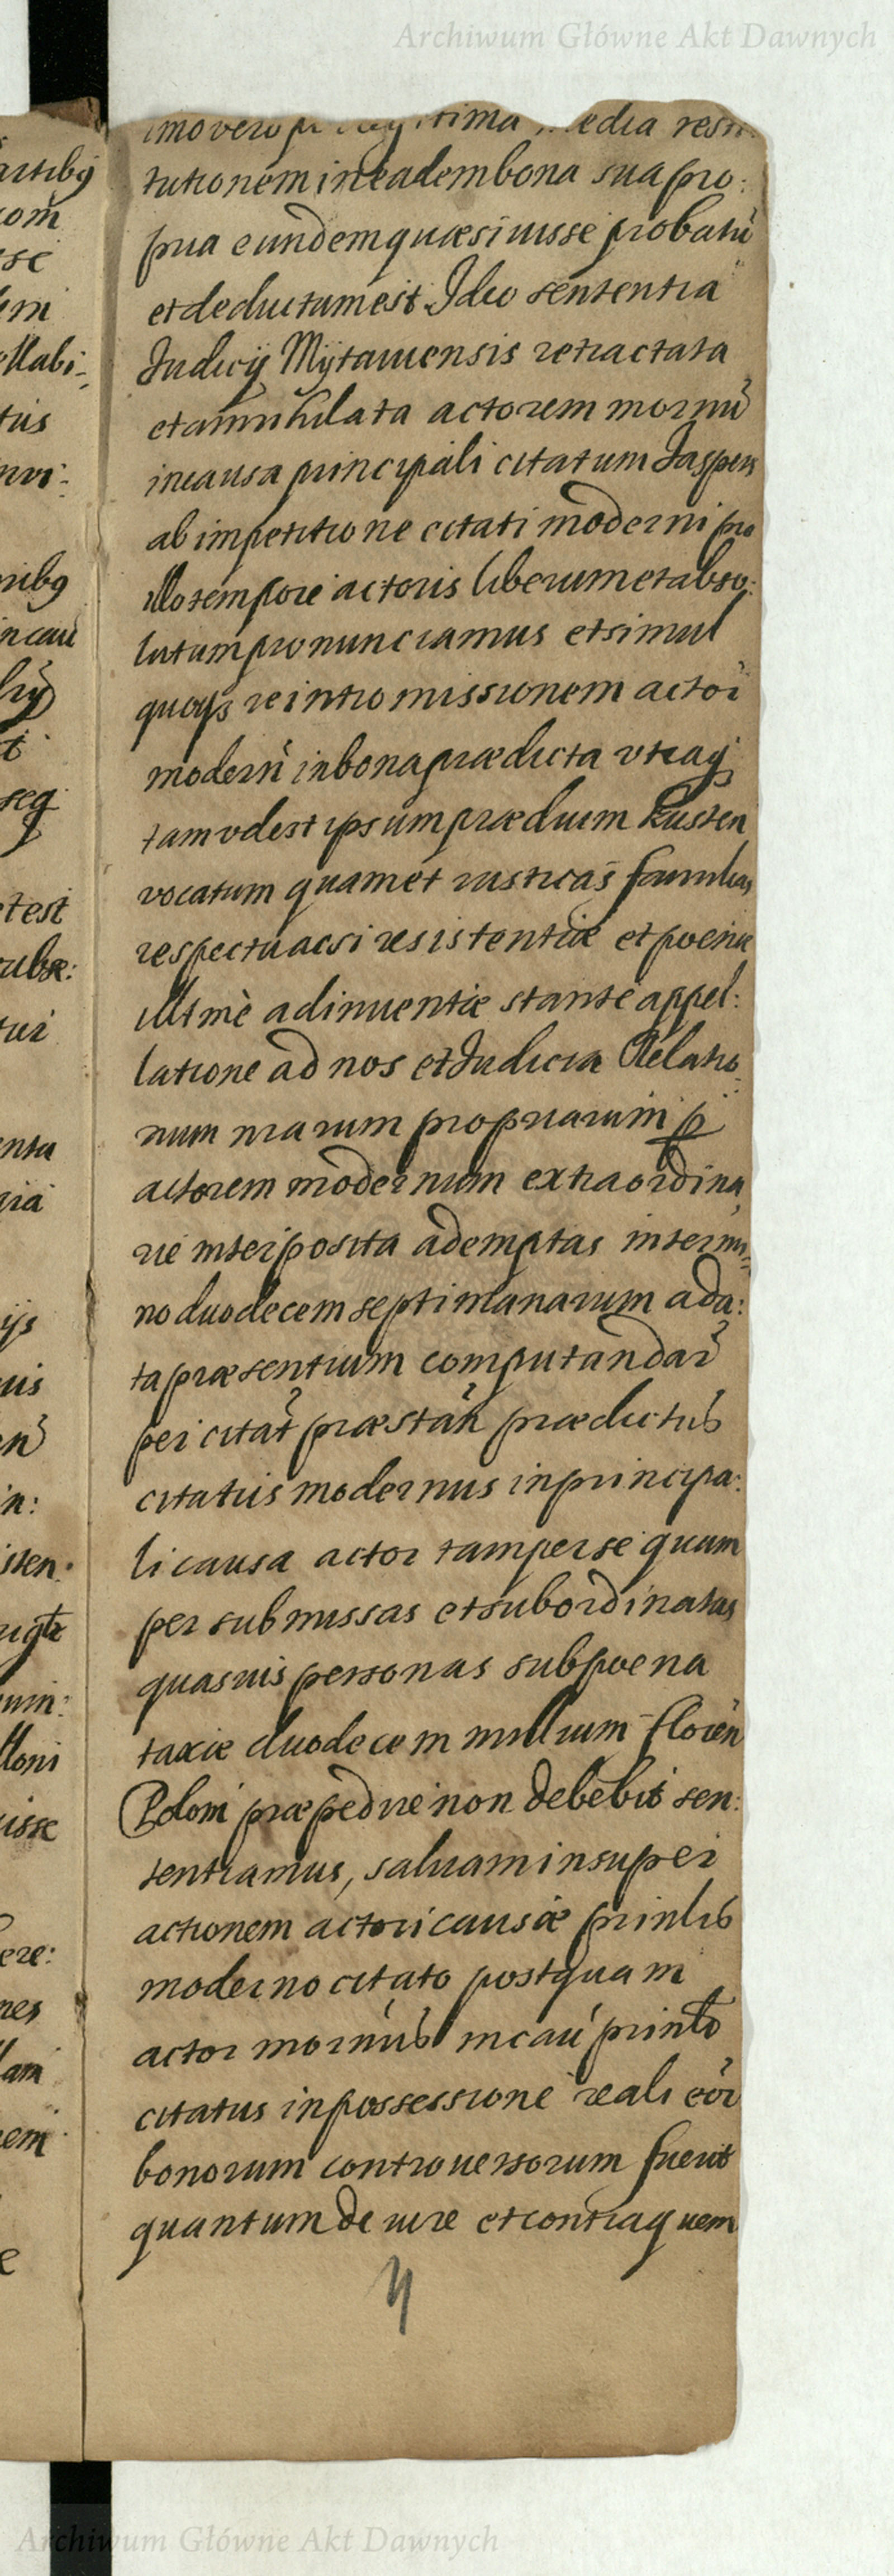 Archiwum Główne Akt Dawnych
imo vero legitima media resti
tutionem in eadem bona sua pro:
pria eundem quæsiuisse probatū
et deductum est Ideo sententia
Judicÿ Mÿtauiensis retractata
et annihilata actorem mornū
in causa principali citatum Jaspers
ab impetitione citati moderni pro
illo tempore actoris liberum et abso:
lutum pronunciamus et simul
quoqȝ reintromissionem actori
moderñ in bona prædicta vtraqȝ
tam videst ipsum prædium Kusten
vocatum quam et rusticas familias
respectu acsi resistentiæ et poenæ
ult mè adinuentiæ stante appel:
latione ad nos et Judicia Relatio
num nrarum propriarum p̱
actorem modernum extraordina
rie interposita ademptas in termi
no duodecem septimanarum a da:
ta præsentium computandar̃
per citat̃ præstañ prædictus
citatus modernus in principa:
li causa actor tam per se quam
per submissas et subordinatas
quasuis personas sub poena
taxiæ duodecem millium floreñ
Poloni præpedire non debebit sen:
tentiamus, saluam insuper
actionem actori causæ prinlis
moderno citato postquam
actor mornus in cau prinli
citatus in possessione reali eor̃
bonorum controuersorum fuerit
quantum de iure et contra quem
artibꝯ
com̃
se
tus
nribꝯ
in cau
seq
et est
tur
enta
gia
ijs
uis
in:
isten:
uisse
ere:
nes
lam
nem
4
Archiwum Główne Akt Dawnych